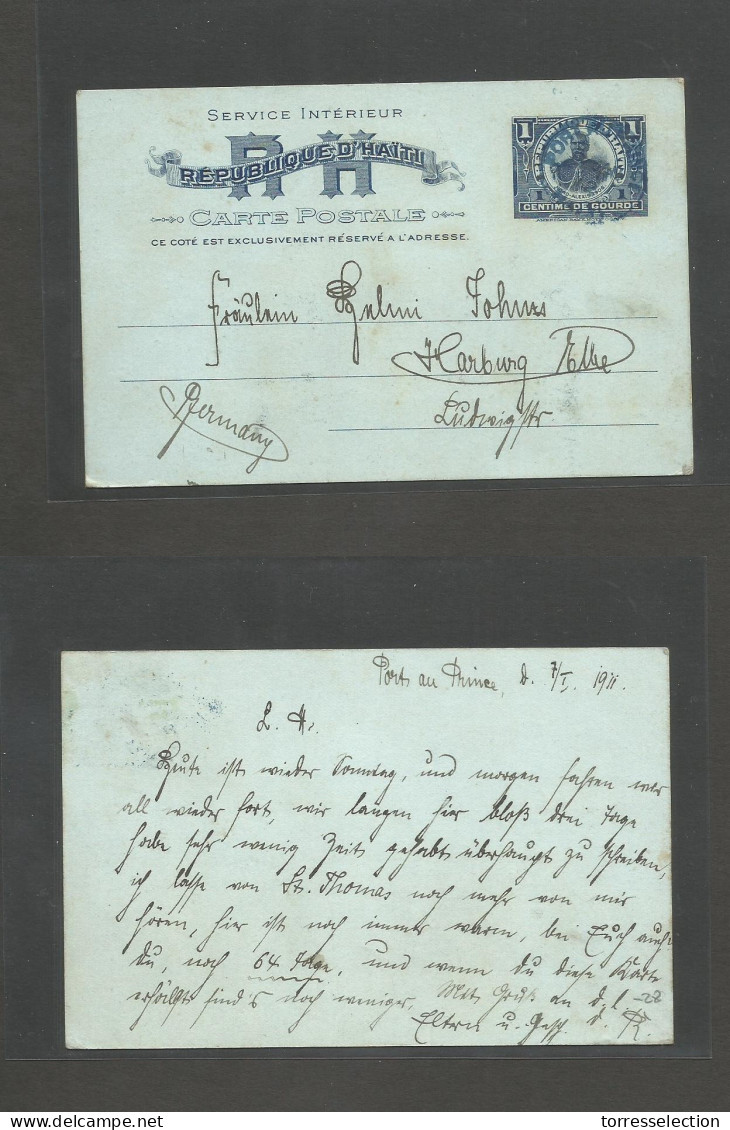 SERVICE INTÉRIEUR
RH
RÉPUBLIQUE D'HAÏTI
CARTE POSTALE
CE COTÉ EST EXCLUSIVEMENT RÉSERVÉ A L'ADRESSE.
1 RÉPUBLIQUE D'HAITI 1
CENTIME DE GOURDE
PORT
Fräulein Helmi Johns
Harburg Elbe
Germany
Ludwigstr
Port au Prince, d. 7/I. 1911.
L. H.
Heute ist wieder Sonntag, und morgen fahren wir
all wieder fort, wir langen hier bloß drei Tage
habe sehr wenig Zeit gehabt überhaupt zu schreiben,
ich lasse von St. Thomas noch mehr von mir
hören, hier ist noch immer warm, bei Euch auch?
Du, noch 64 Tage, und wenn du diese Karte
erhälst sind's noch weniger. Mit Gruß an d. l.
Eltern u. Gesch. d. R.
-28
delcampe.net
torresselection